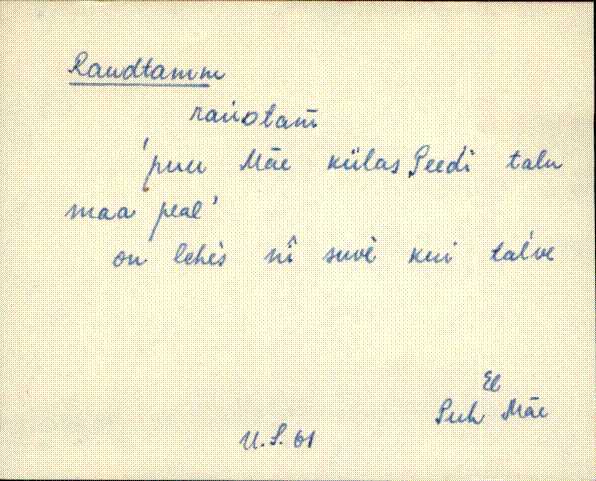 Raudtamm
raùotam̄
'puu Mäe külas Peedi talu
maa peal'
on lehès nî suvè kui tal've
El
Puh Mäe
U.S. 61